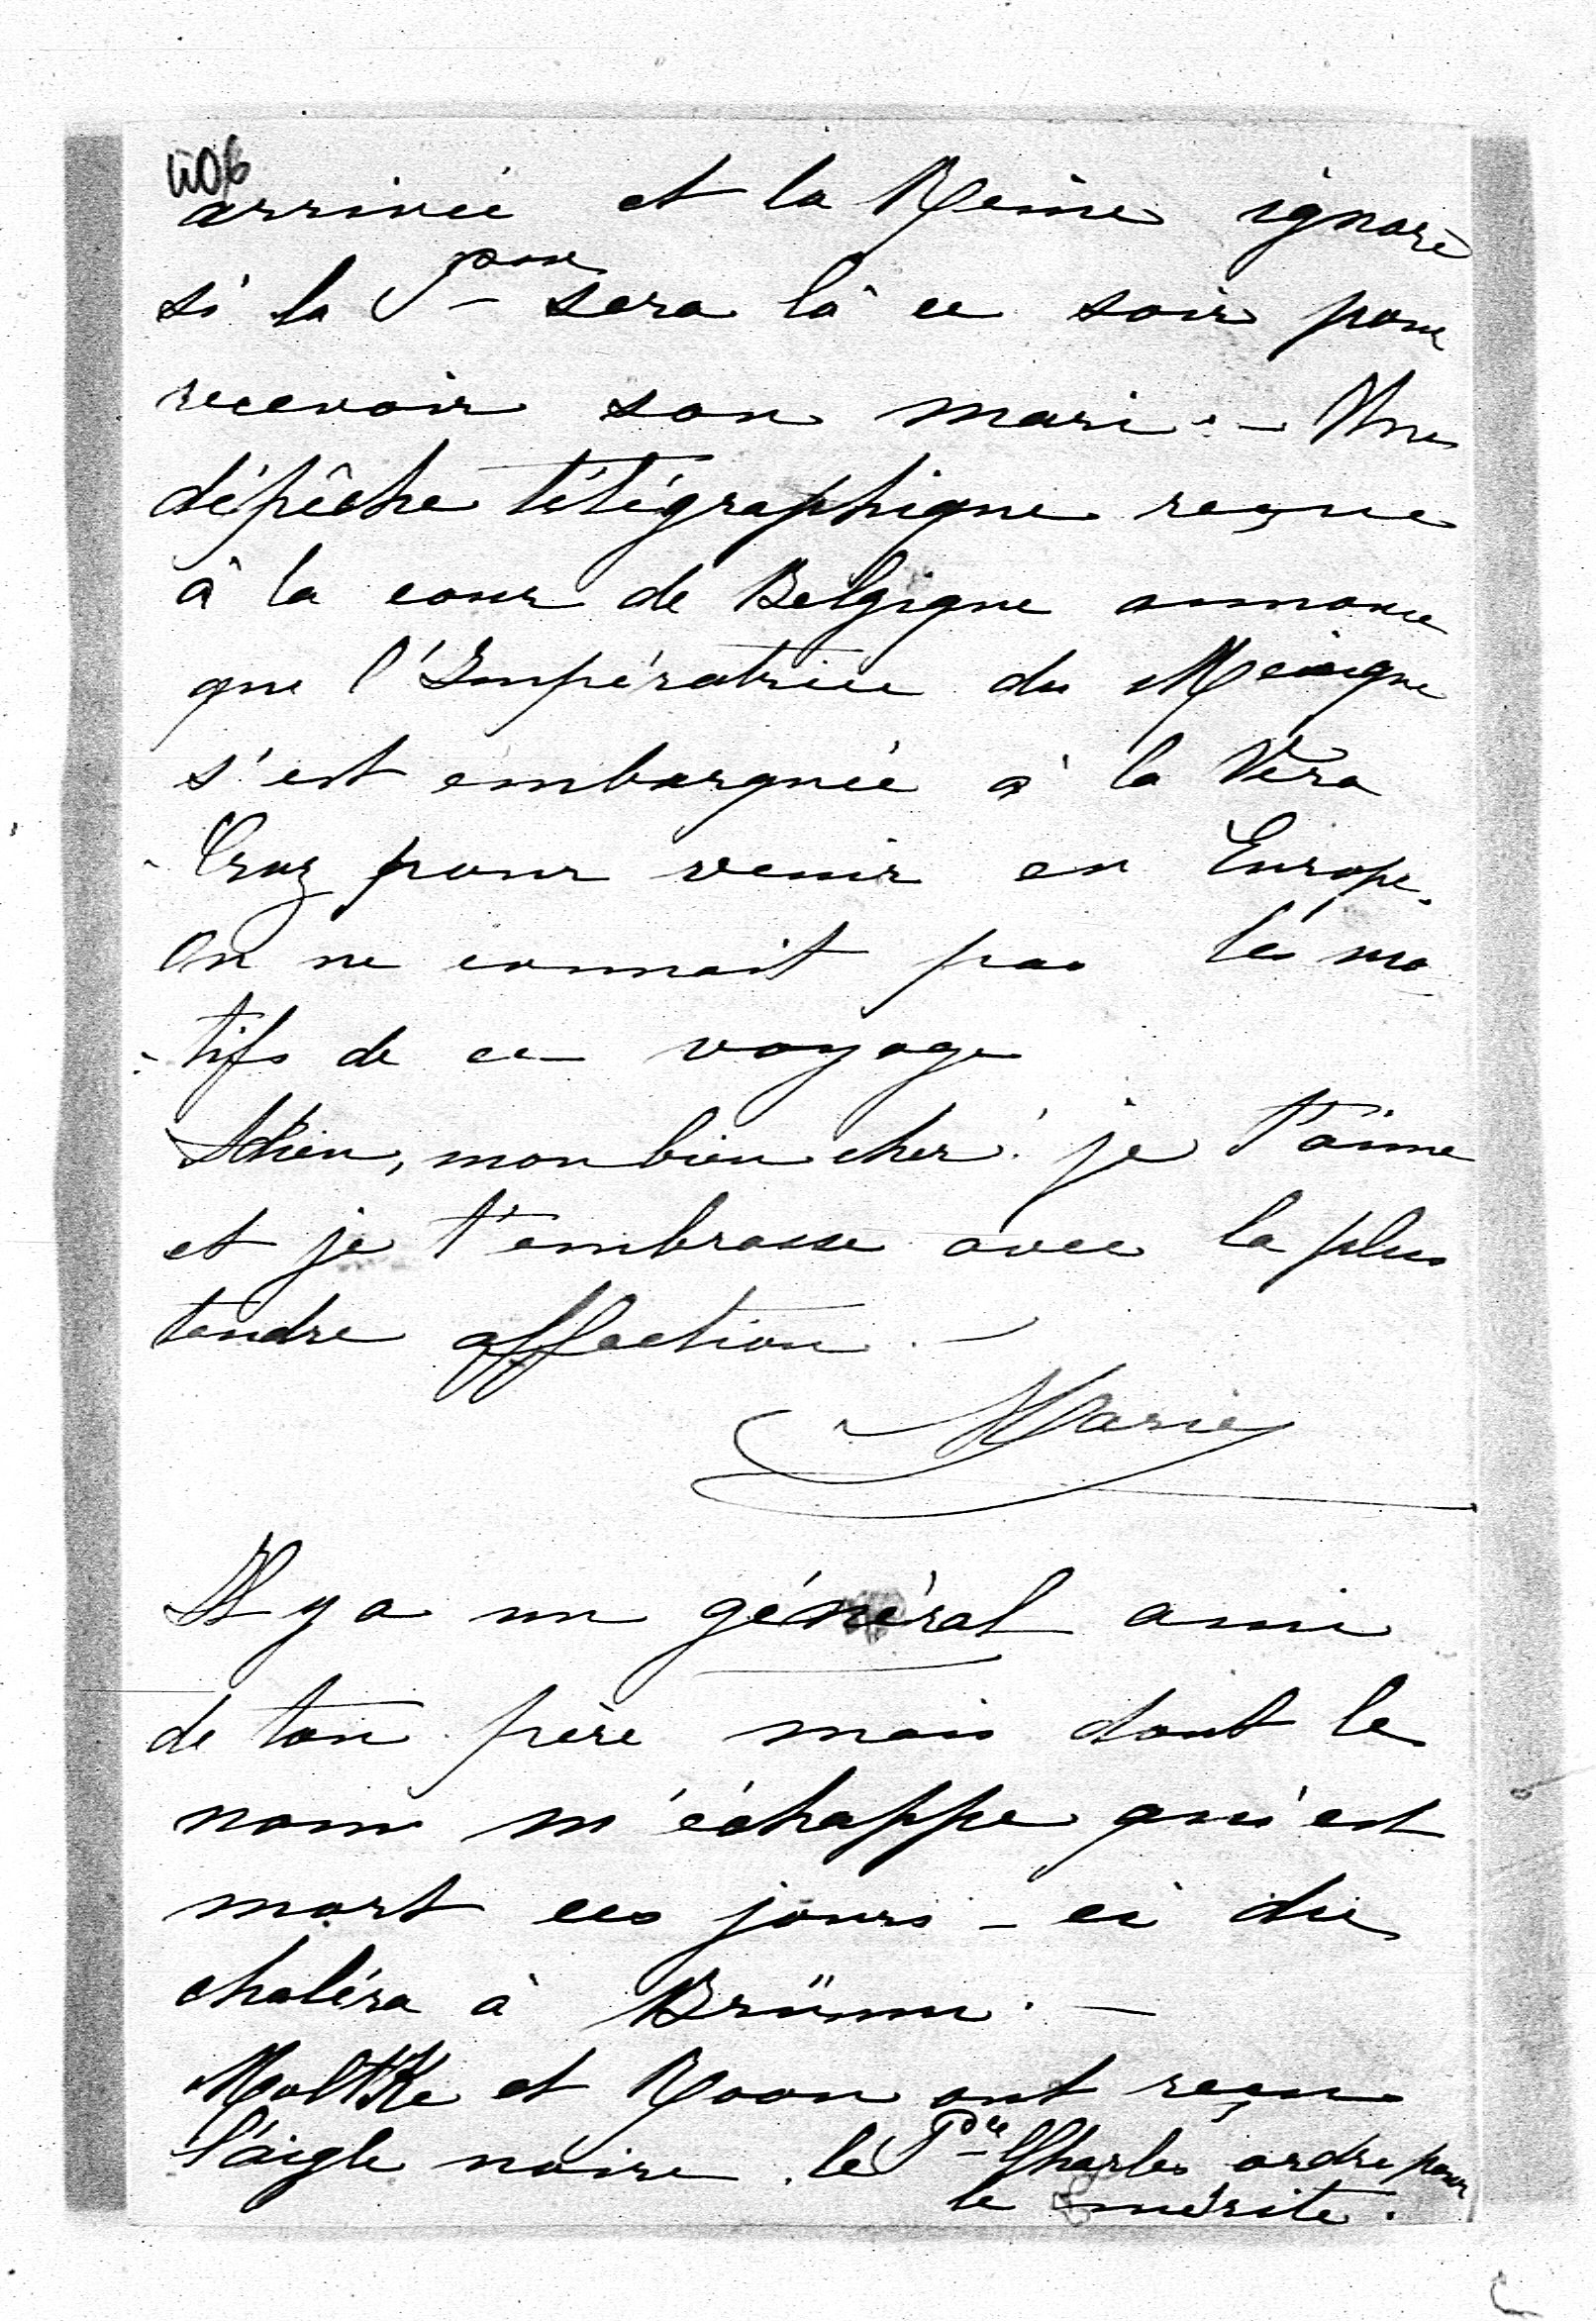 406
arrivée et la Reine ignore
si la Psse sera là ce soir pour
recevoir son mari. - Une
dépêche télégraphique reçue
à la cour de Belgique annonce
que l'Impératrice du Mexique
s'est embarquée à la Vera
- Cruz pour venir en Europe.
On ne connait pas les mo
- tifs de ce voyage
Adieu, mon bien cher! je t'aime
et je t'embrasse avec la plus
tendre affection. -
Marie
Il y a un général ami
de ton père mais dont le
nom m'échappe qui est
mort ces jours - ci du
choléra à Brünn. -
Moltke et Roon ont reçu
l'aigle noire. le Pce Charles ordre pour
le mérite.